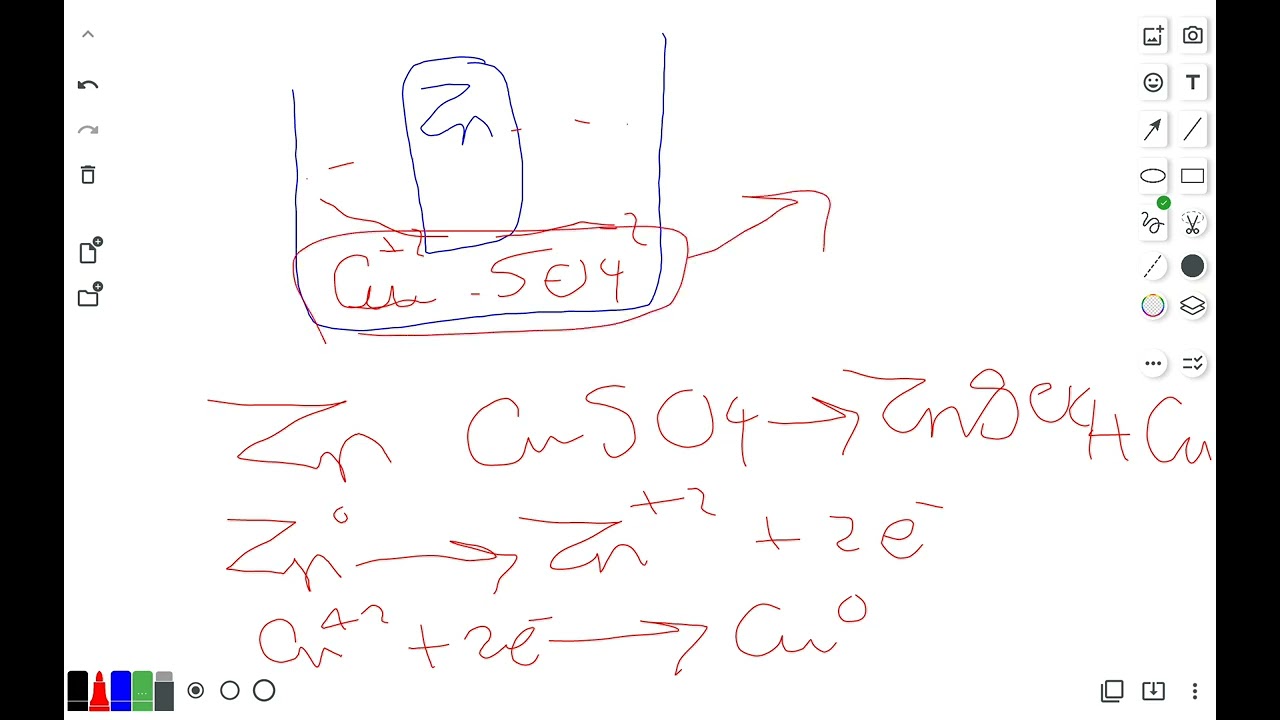 Zn
Cu+2 - SO4 2
Zn CuSO4 → ZnSO4 + Cu
Zn0 → Zn+2 + 2e-
Cu+2 + 2e- → Cu0
T